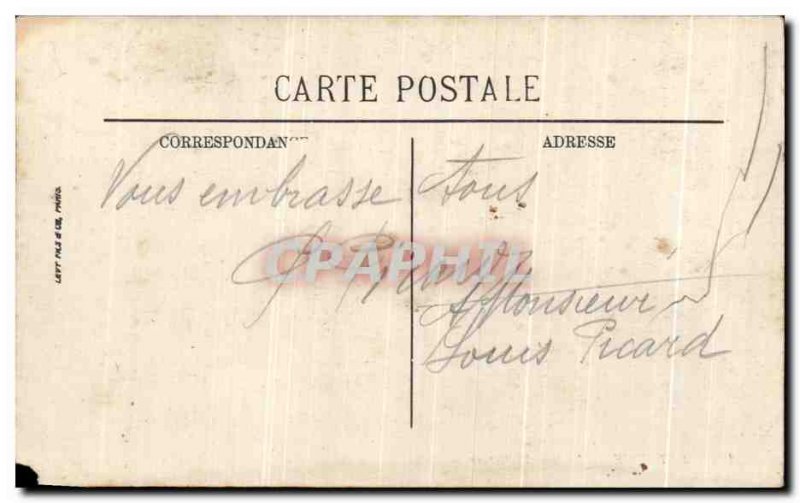 CARTE POSTALE
CORRESPONDANCE
ADRESSE
LEVY FILS & CIE, PARIS.
Vous embrasse tous
CPARHIL
Monsieur
Louis Picard